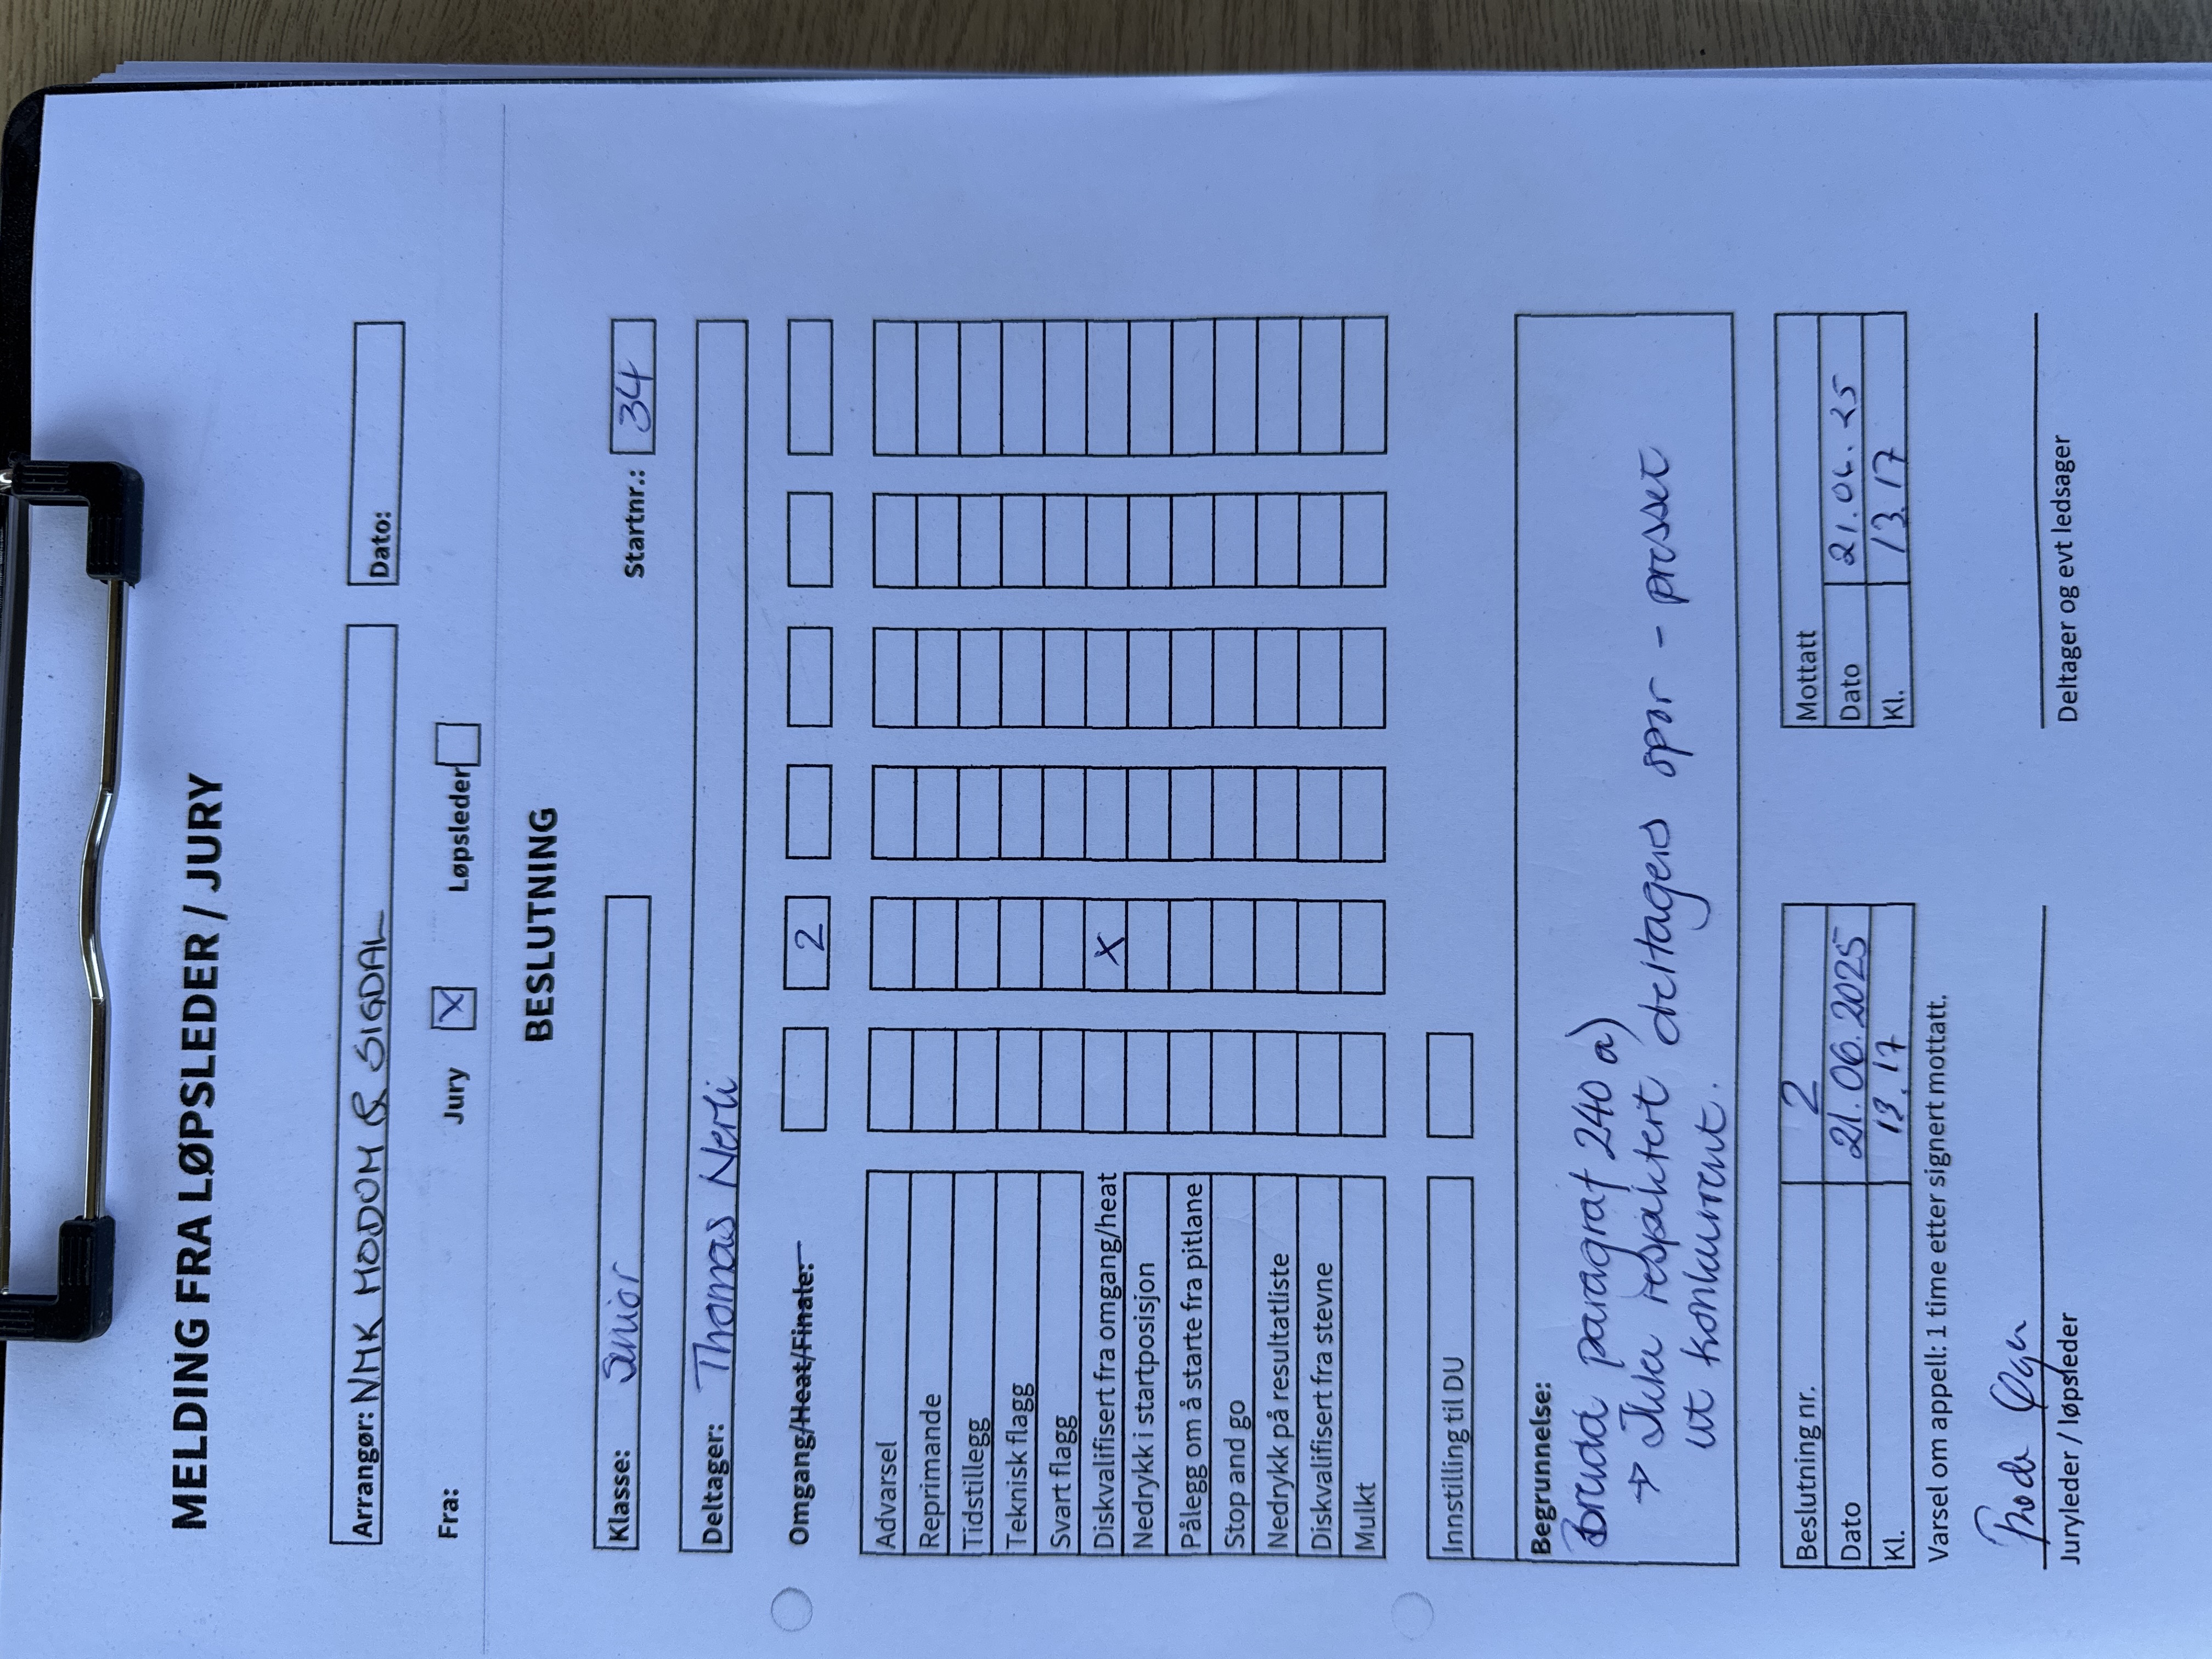 MELDING FRA LØPSLEDER / JURY
Arrangør: NMK MODUM & SIGDAL Dato:
Fra: Jury X Løpsleder
BESLUTNING
Klasse: Junior Startnr.: 34
Deltager: Thomas Nerli
Omgang/Heat/Finale: 2
Advarsel
Reprimande
Tidstillegg
Teknisk flagg
Svart flagg
Diskvalifisert fra omgang/heat X
Nedrykk i startposisjon
Pålegg om å starte fra pitlane
Stop and go
Nedrykk på resultatliste
Diskvalifisert fra stevne
Mulkt
Innstilling til DU
Begrunnelse:
Brudd paragraf 240 a)
→ Ikke respektert deltagers spor - presset
ut konkurrent.
Beslutning nr. 2 Mottatt
Dato 21.06.2025 Dato 21.06.25
Kl. 13.17 Kl. 13.17
Varsel om appell: 1 time etter signert mottatt.
Juryleder / løpsleder Deltager og evt ledsager